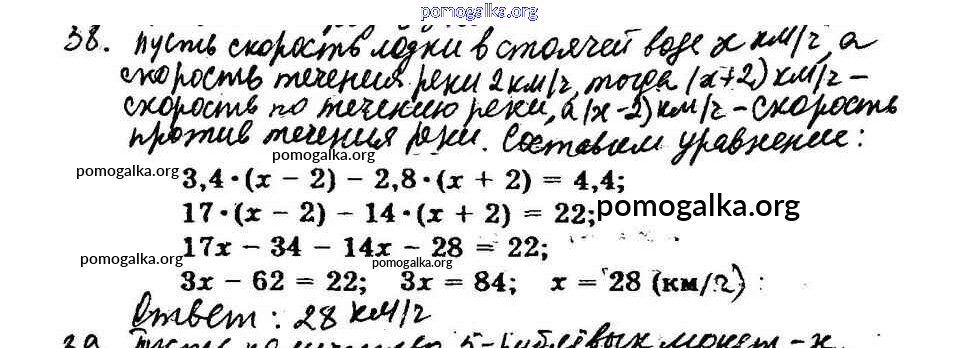 pomogalka.org
38. пусть скорость лодки в стоячей воде x км/ч, а
скорость течения реки 2 км/ч, тогда (x+2) км/ч –
скорость по течению реки, а (x-2) км/ч – скорость
против течения реки. Составим уравнение:
pomogalka.org
pomogalka.org
3,4·(x − 2) − 2,8·(x + 2) = 4,4;
17·(x − 2) − 14·(x + 2) = 22;
pomogalka.org
17x − 34 − 14x − 28 = 22;
pomogalka.org
pomogalka.org
3x − 62 = 22; 3x = 84; x = 28 (км/ч)
Ответ: 28 км/ч
39. Пусть